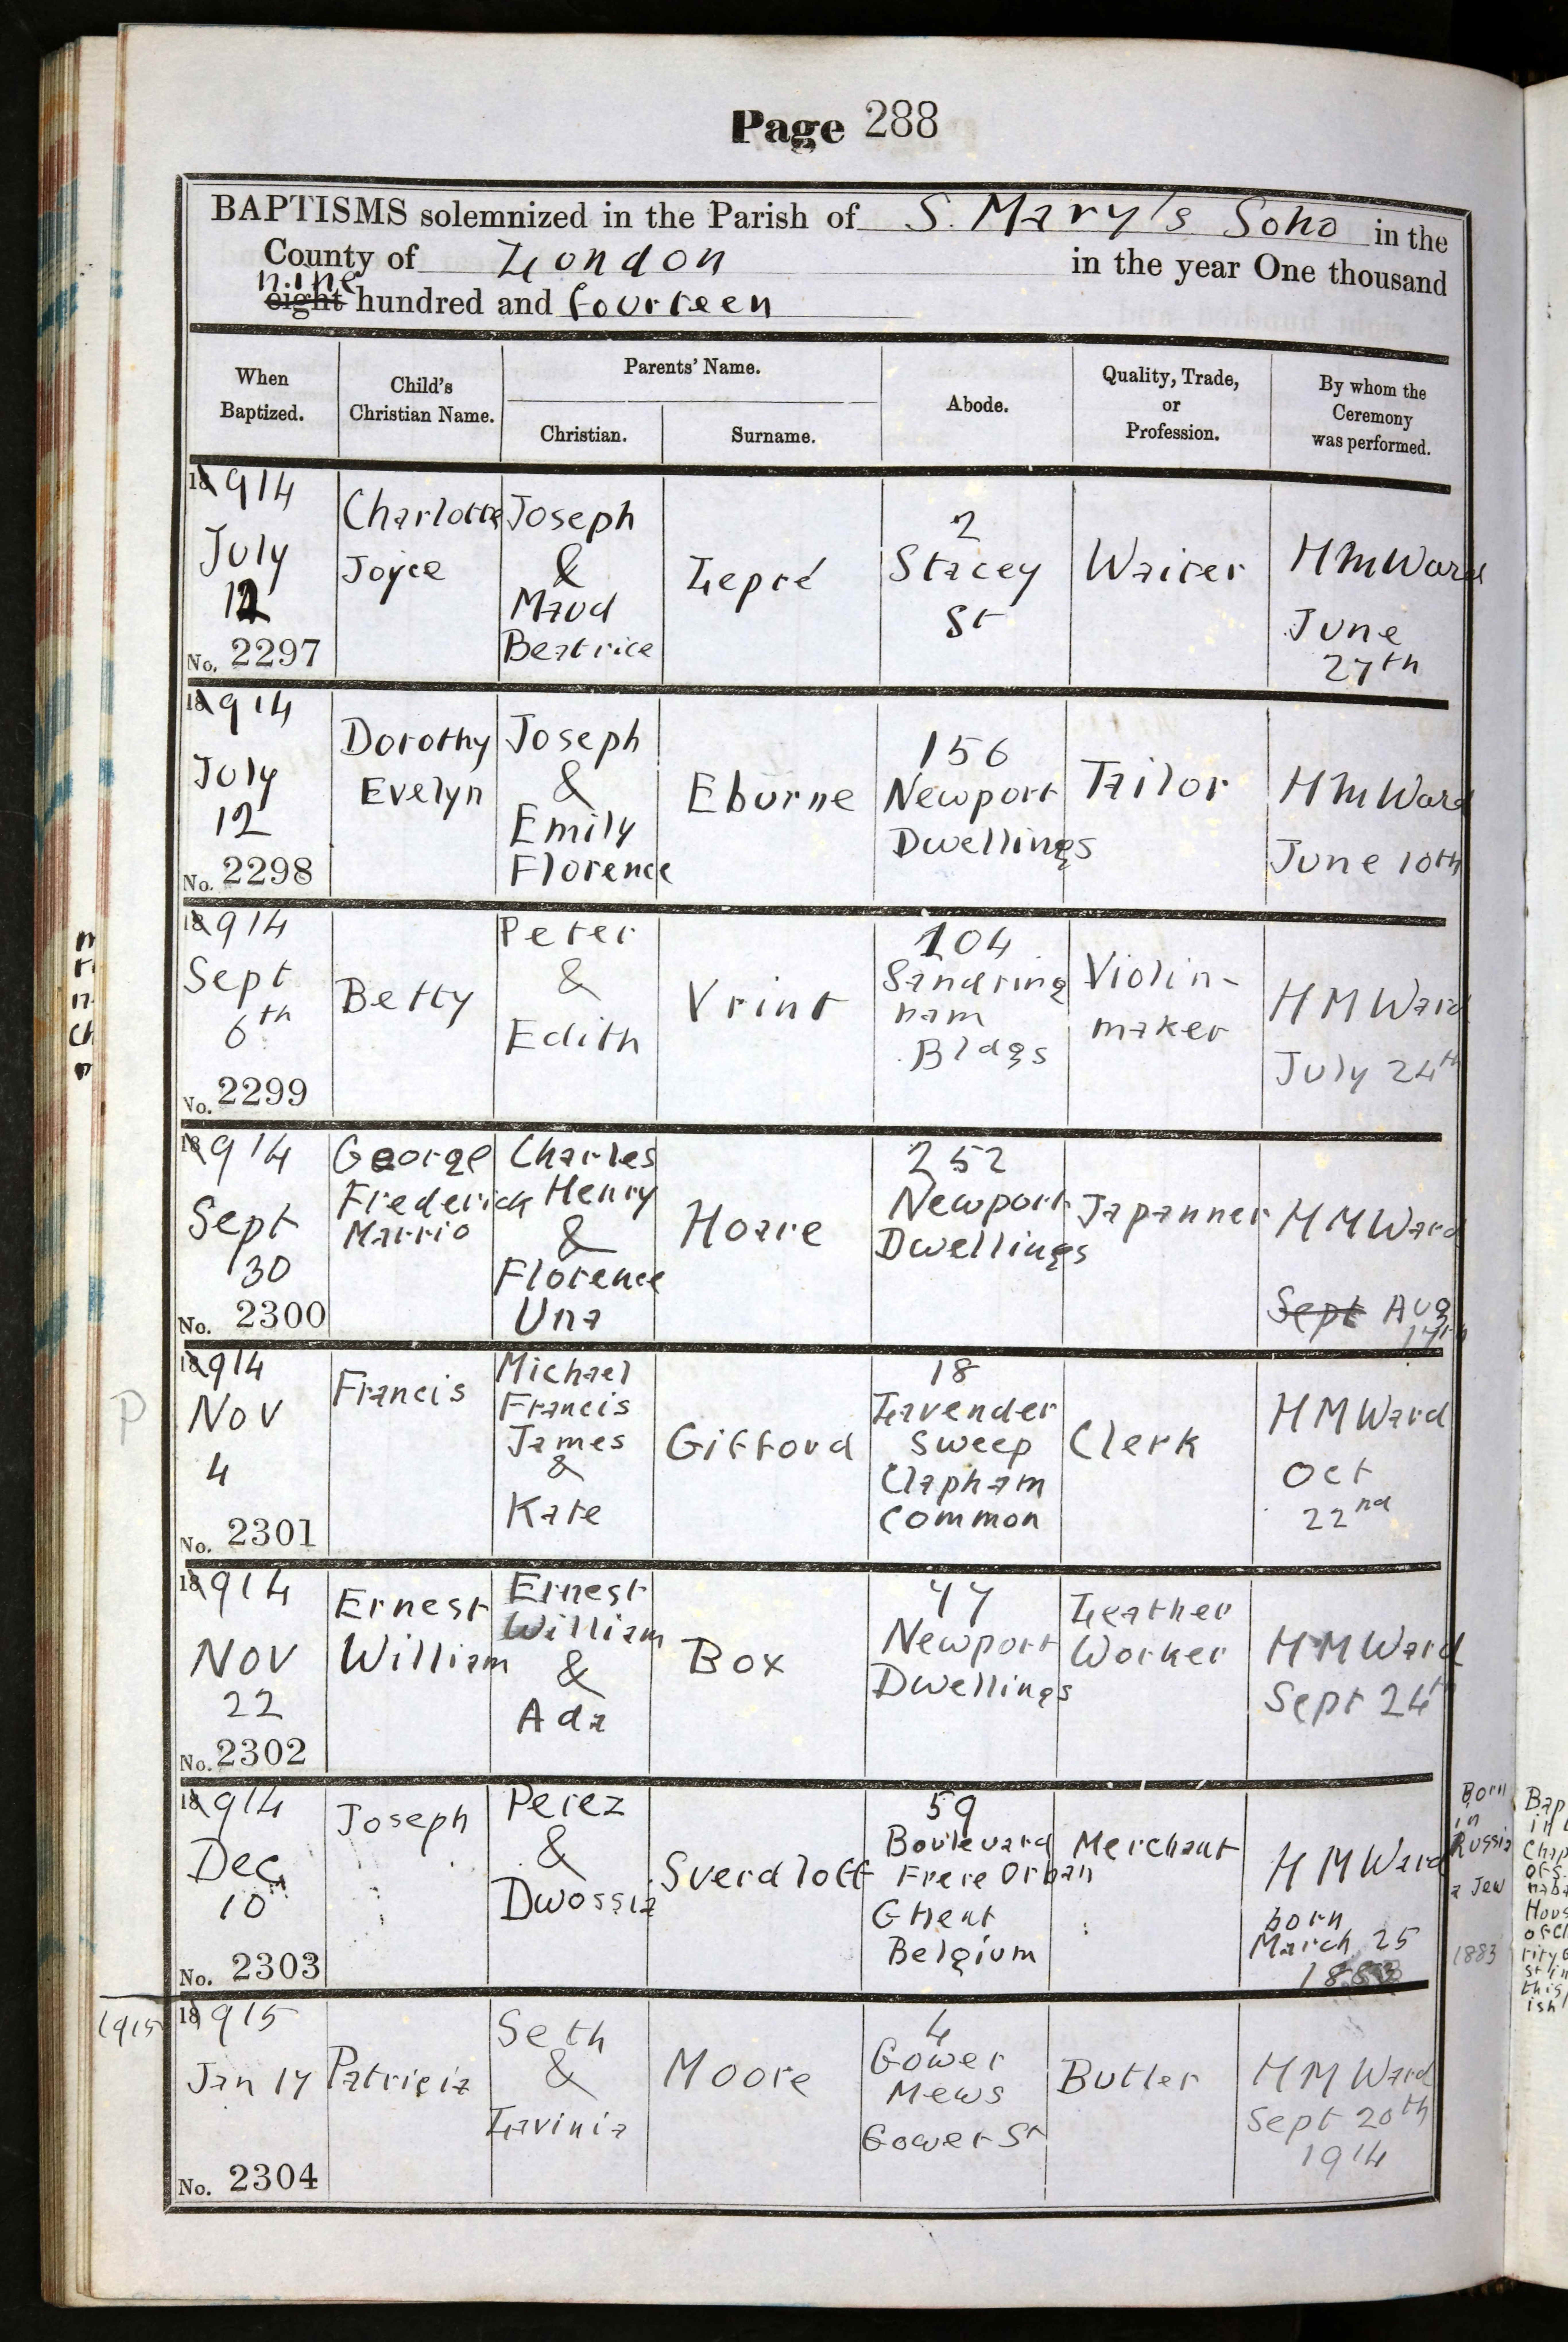 Page 288
BAPTISMS solemnized in the Parish of S. Mary's Soho in the
County of London in the year One thousand
nine
eight hundred and fourteen
When Baptized.
Child's Christian Name.
Parents' Name.
Christian.
Surname.
Abode.
Quality, Trade, or Profession.
By whom the Ceremony was performed.
18914
July
12
No. 2297
Charlotte
Joyce
Joseph
&
Maud
Beatrice
Lepré
2
Stacey
St
Waiter
H M Ward
June
27th
18914
July
12
No. 2298
Dorothy
Evelyn
Joseph
&
Emily
Florence
Eburne
156
Newport
Dwellings
Tailor
H M Ward
June 10th
18914
Sept
6th
No. 2299
Betty
Peter
&
Edith
Vrint
104
Sandring
ham
Bldgs
Violin-
maker
H M Ward
July 24th
18914
Sept
30
No. 2300
George
Frederick
Marrio
Charles
Henry
&
Florence
Una
Hoare
252
Newport
Dwellings
Japanner
H M Ward
Sept Aug
17th
P
18914
Nov
4
No. 2301
Francis
Michael
Francis
James
&
Kate
Gifford
18
Lavender
Sweep
Clapham
Common
Clerk
H M Ward
Oct
22nd
18914
Nov
22
No. 2302
Ernest
William
Ernest
William
&
Ada
Box
77
Newport
Dwellings
Leather
Worker
H M Ward
Sept 24th
18914
Dec
10
No. 2303
Joseph
Perez
&
Dwossia
Sverdloff
59
Boulevard
Frere Orban
Ghent
Belgium
Merchant
H M Ward
born
March 25
Born
in
Russia
a Jew
1883
1915
18915
Jan 17
No. 2304
Patricia
Seth
&
Lavinia
Moore
4
Gower
Mews
Gower St
Butler
H M Ward
Sept 20th
1914